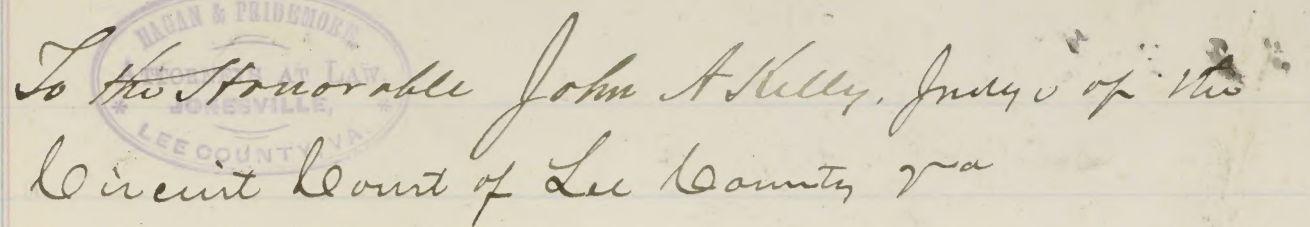 HAGAN & PRIDEMORE,
ATTORNEYS AT LAW,
JONESVILLE,
LEE COUNTY, VA.
To the Honorable John A Kelly, Judge of the
Circuit Court of Lee County Va